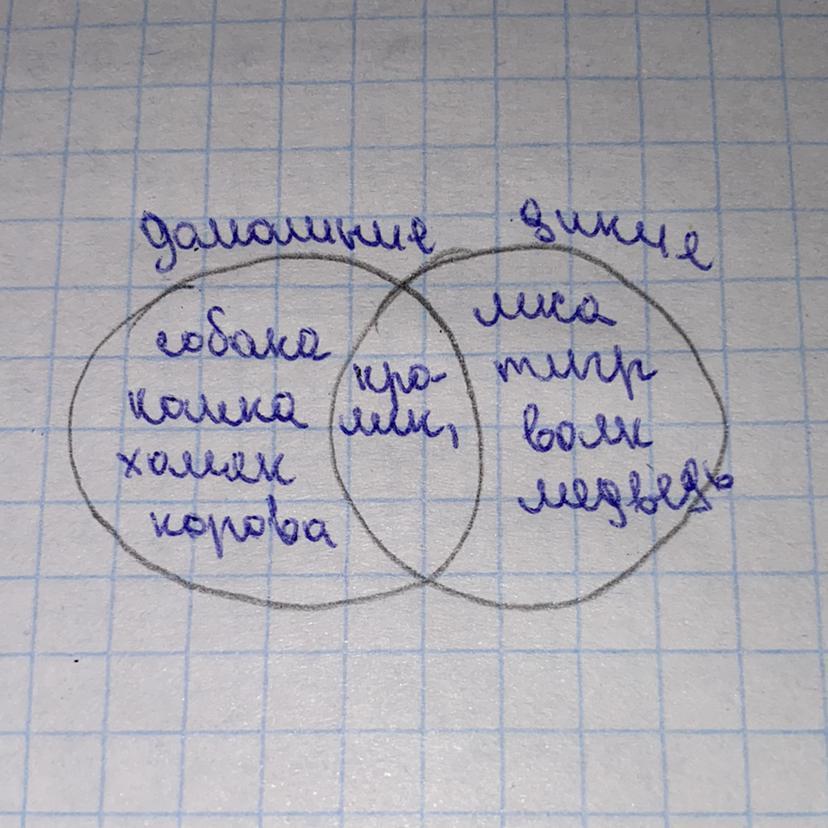 домашние
дикие
собака
кошка
хомяк
корова
кро-
лик,
лиса
тигр
волк
медведь